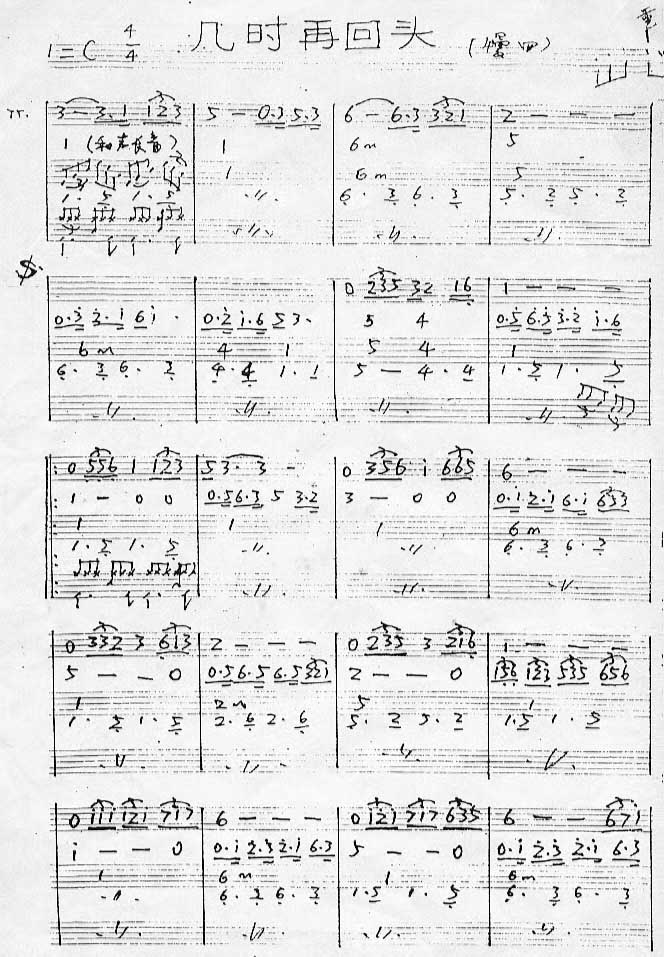 1=C 4/4 几时再回头 (慢四)
3 — 3.1 123 | 5 — 0.3 5.3 | 6 — 6.3 321 | 2 — — —
1 (和声长音) | 1 | 6m | 5
1 | 6m | 5
1. 5 1. 5 | 〃 | 6. 3 6. 3 | 5. 2 5. 2
〃 | 〃 | 〃
0 235 32 16 | 1 — — —
0.3 3.1 61. | 0.2 1.6 53. | 5 4 | 0.5 6.5 3.2 1.6
6m | 4 1 | 5 4 | 1
6. 3 6. 3 | 4. 4 1. 1 | 5 — 4. 4 | 1. 5 1. 5
〃 | 〃 | 〃 | 〃
0 556 1 123 | 53. 3 — | 0 356 i 665 | 6 — — —
1 — 0 0 | 0.5 6.3 5 3.2 | 3 — 0 0 | 0.1 2.1 6.1 653
1 | 1 | 1 | 6m
1. 5 1. 5 | 〃 | 〃 | 6. 3 6. 3
〃 | 〃 | 〃
0 332 3 613 | 2 — — — | 0 235 3 216 | 1 — — —
5 — — 0 | 0.5 6.5 6.5 321 | 2 — — 0 | 156 123 535 656
1 | 2m | 5 | 1
1. 5 1. 5 | 2. 6 2. 6 | 5. 2 5. 2 | 1.5 1. 5
〃 | 〃 | 〃 | 〃
0 111 121 717 | 6 — — — | 0 121 717 635 | 6 — — 671
i — — 0 | 0.i 2.3 2.i 6.3 | 5 — — 0 | 0.i 2.3 2.i 6.3
1 | 6m | 1 | 6m
〃 | 6. 3 6. 3 | 1.5 1. 5 | 6. 3 6. 3
〃 | 〃 | 〃 | 〃